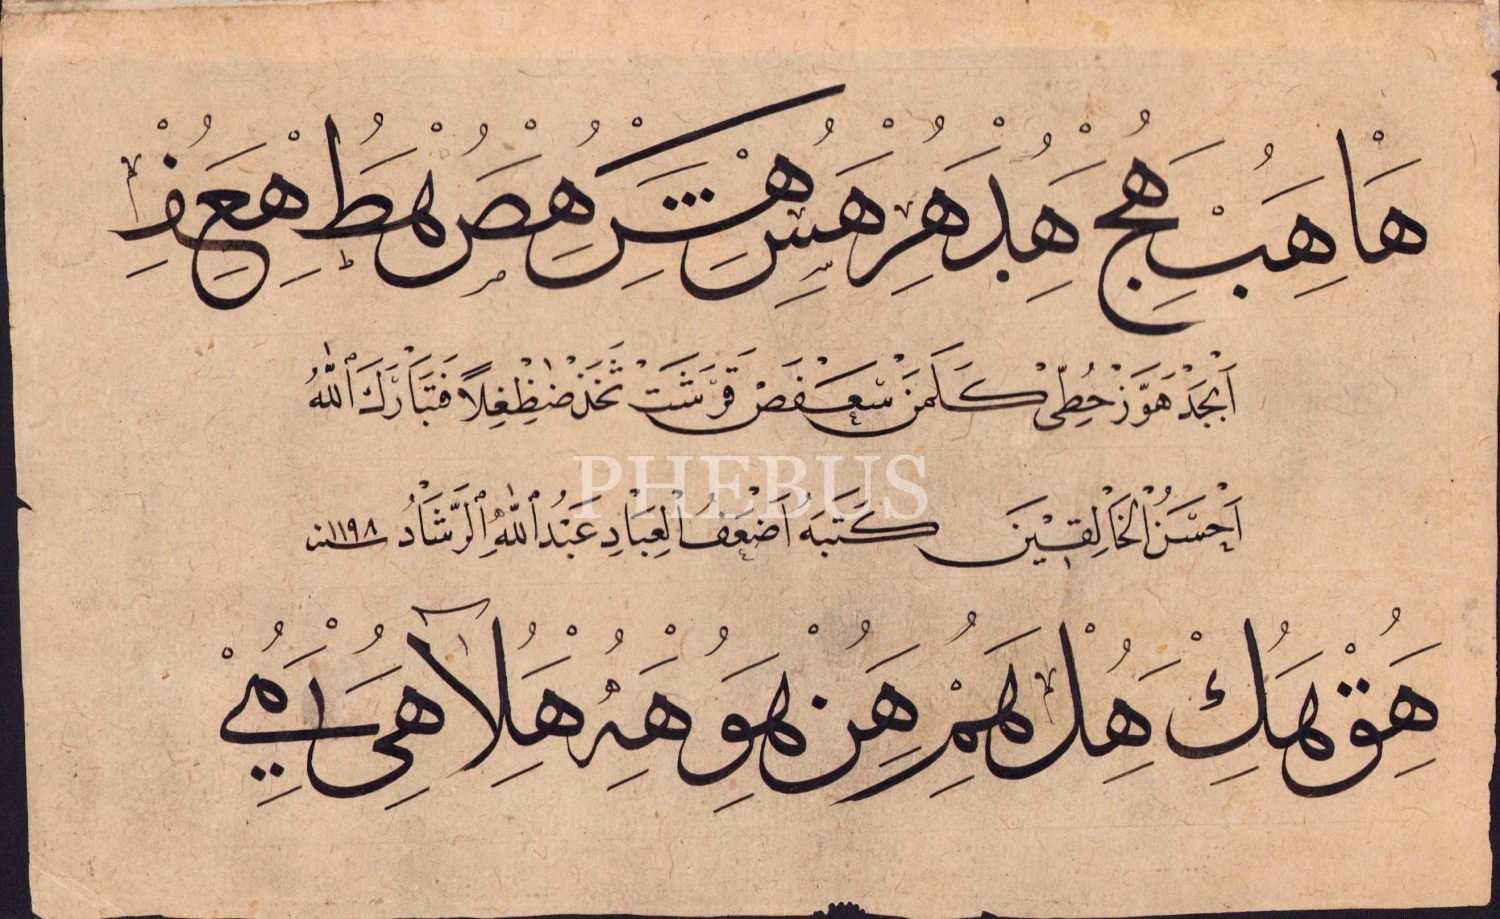 ها هب هج هد هر هس هش هص هط هع هف
اَبْجَدْ هَوَّزْ حُطِّى كَلَمَنْ سَعْفَصْ قَرَشَتْ ثَخَذْ ضَظِغِلًا فَتَبَارَكَ اللّٰهُ
PHEBUS
اَحْسَنُ الْخَالِقِيْنَ كَتَبَهُ اَضْعَفُ الْعِبَادِ عَبْدُ اللّٰهِ الرَّشَادُ سنه ١١٩٨
هق هك هل هم هن هو هه هلا هى